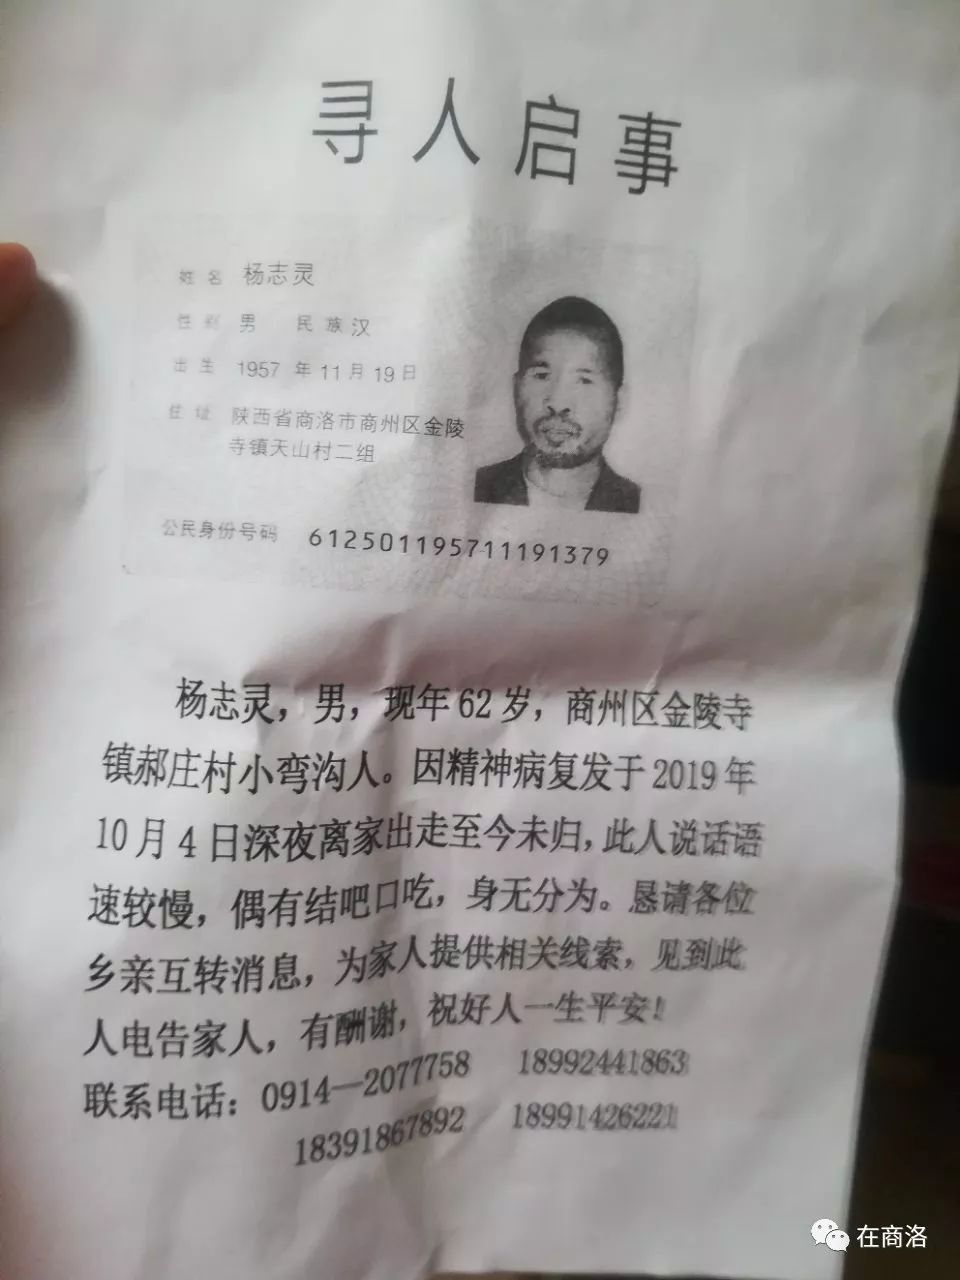 寻人启事
姓名 杨志灵
性别 男 民族 汉
出生 1957 年 11 月 19 日
住址 陕西省商洛市商州区金陵
寺镇天山村二组
公民身份号码 612501195711191379
杨志灵，男，现年 62 岁，商州区金陵寺
镇郝庄村小弯沟人。因精神病复发于 2019 年
10 月 4 日深夜离家出走至今未归，此人说话语
速较慢，偶有结吧口吃，身无分为。恳请各位
乡亲互转消息，为家人提供相关线索，见到此
人电告家人，有酬谢，祝好人一生平安！
联系电话：0914—2077758 18992441863
18391867892 18991426221
在商洛